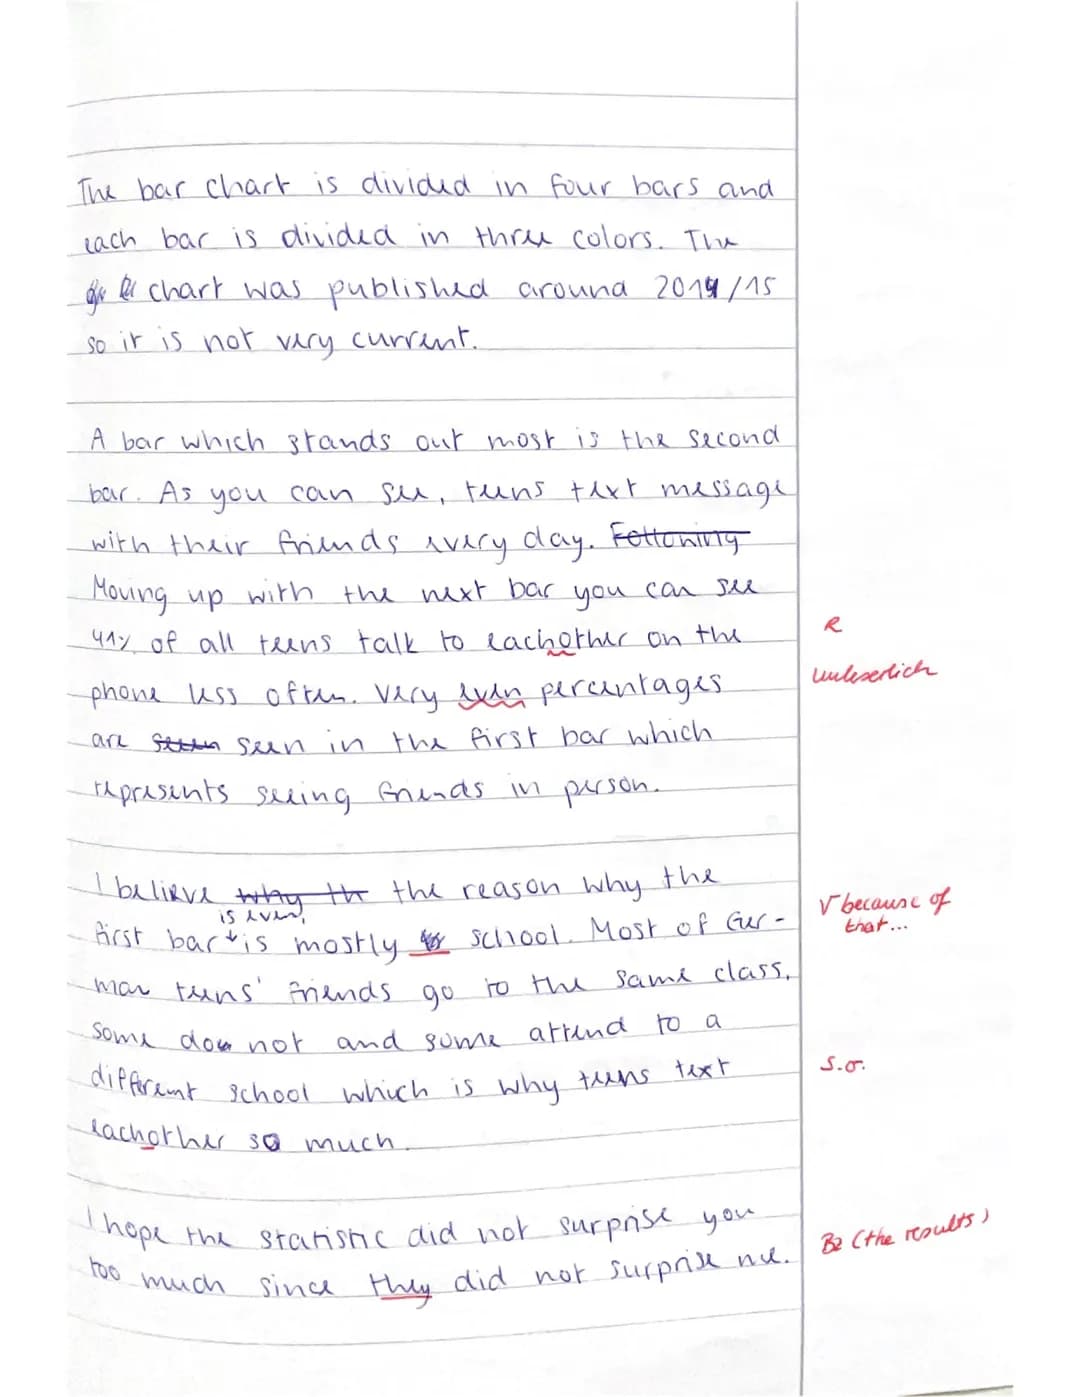 The bar chart is divided in four bars and
each bar is divided in three colors. The
chart was published around 2014/15
so it is not very current.
A bar which stands out most is the second
bar. As you can see, teens text message
with their friends every day. Following
Moving up with the next bar you can see
41% of all teens talk to eachother on the
R
phone less often. Very even percentages
unleserlich
are seen in the first bar which
represents seeing friends in person.
I believe why the the reason why the
is even,
first bar is mostly school. Most of Ger-
V because of
that...
man teens' friends go to the same class,
some do not and some attend to a
different school which is why teens text
s.o.
eachother so much.
I hope the statistic did not surprise you
too much since they did not surprise me.
Bz (the results)